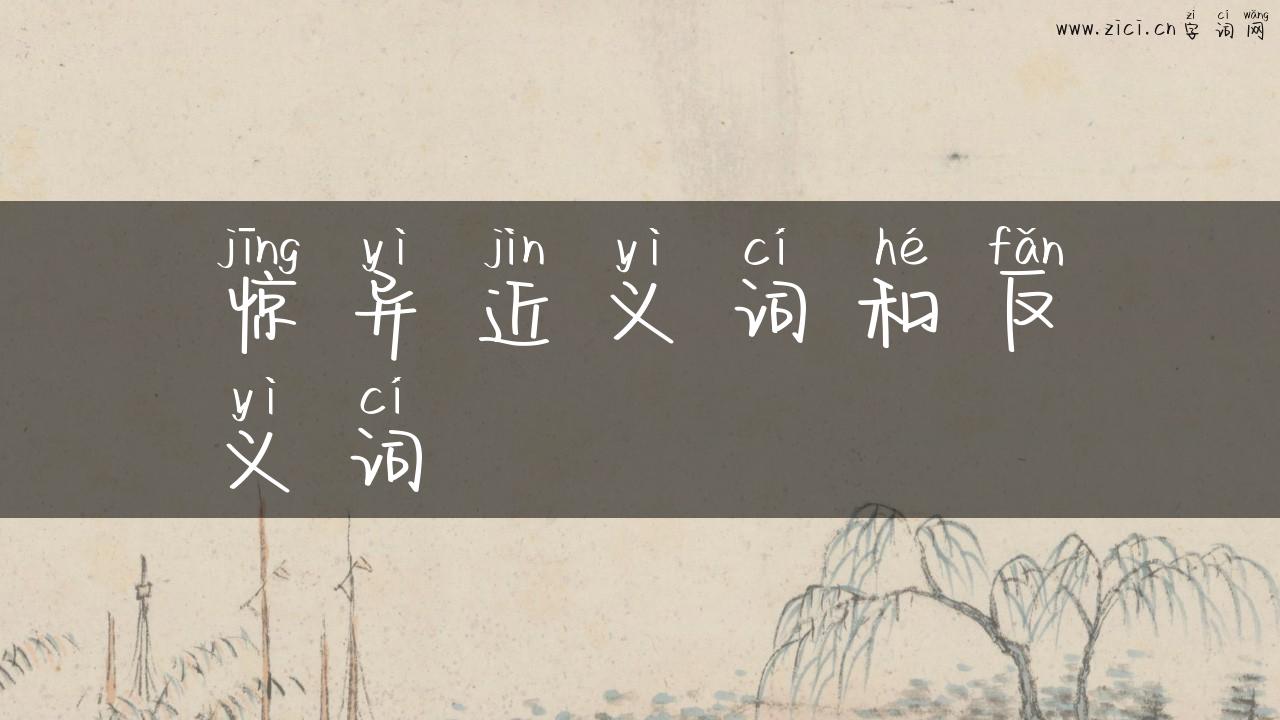 zì cí wǎng
www.zici.cn 字词网
jīng yì jìn yì cí hé fǎn
惊异近义词和反
yì cí
义词